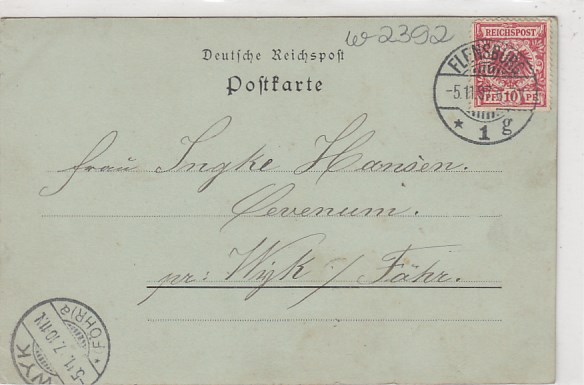 w-2392
Deutsche Reichspost
Postkarte
REICHSPOST
PF 10 PF
FLENSBURG
* 1 g
Frau Ingke Hansen.
Oevenum.
pr: Wyk / Föhr.
WYK
* (FÖHR) a
-5/11. 7.10-11V.